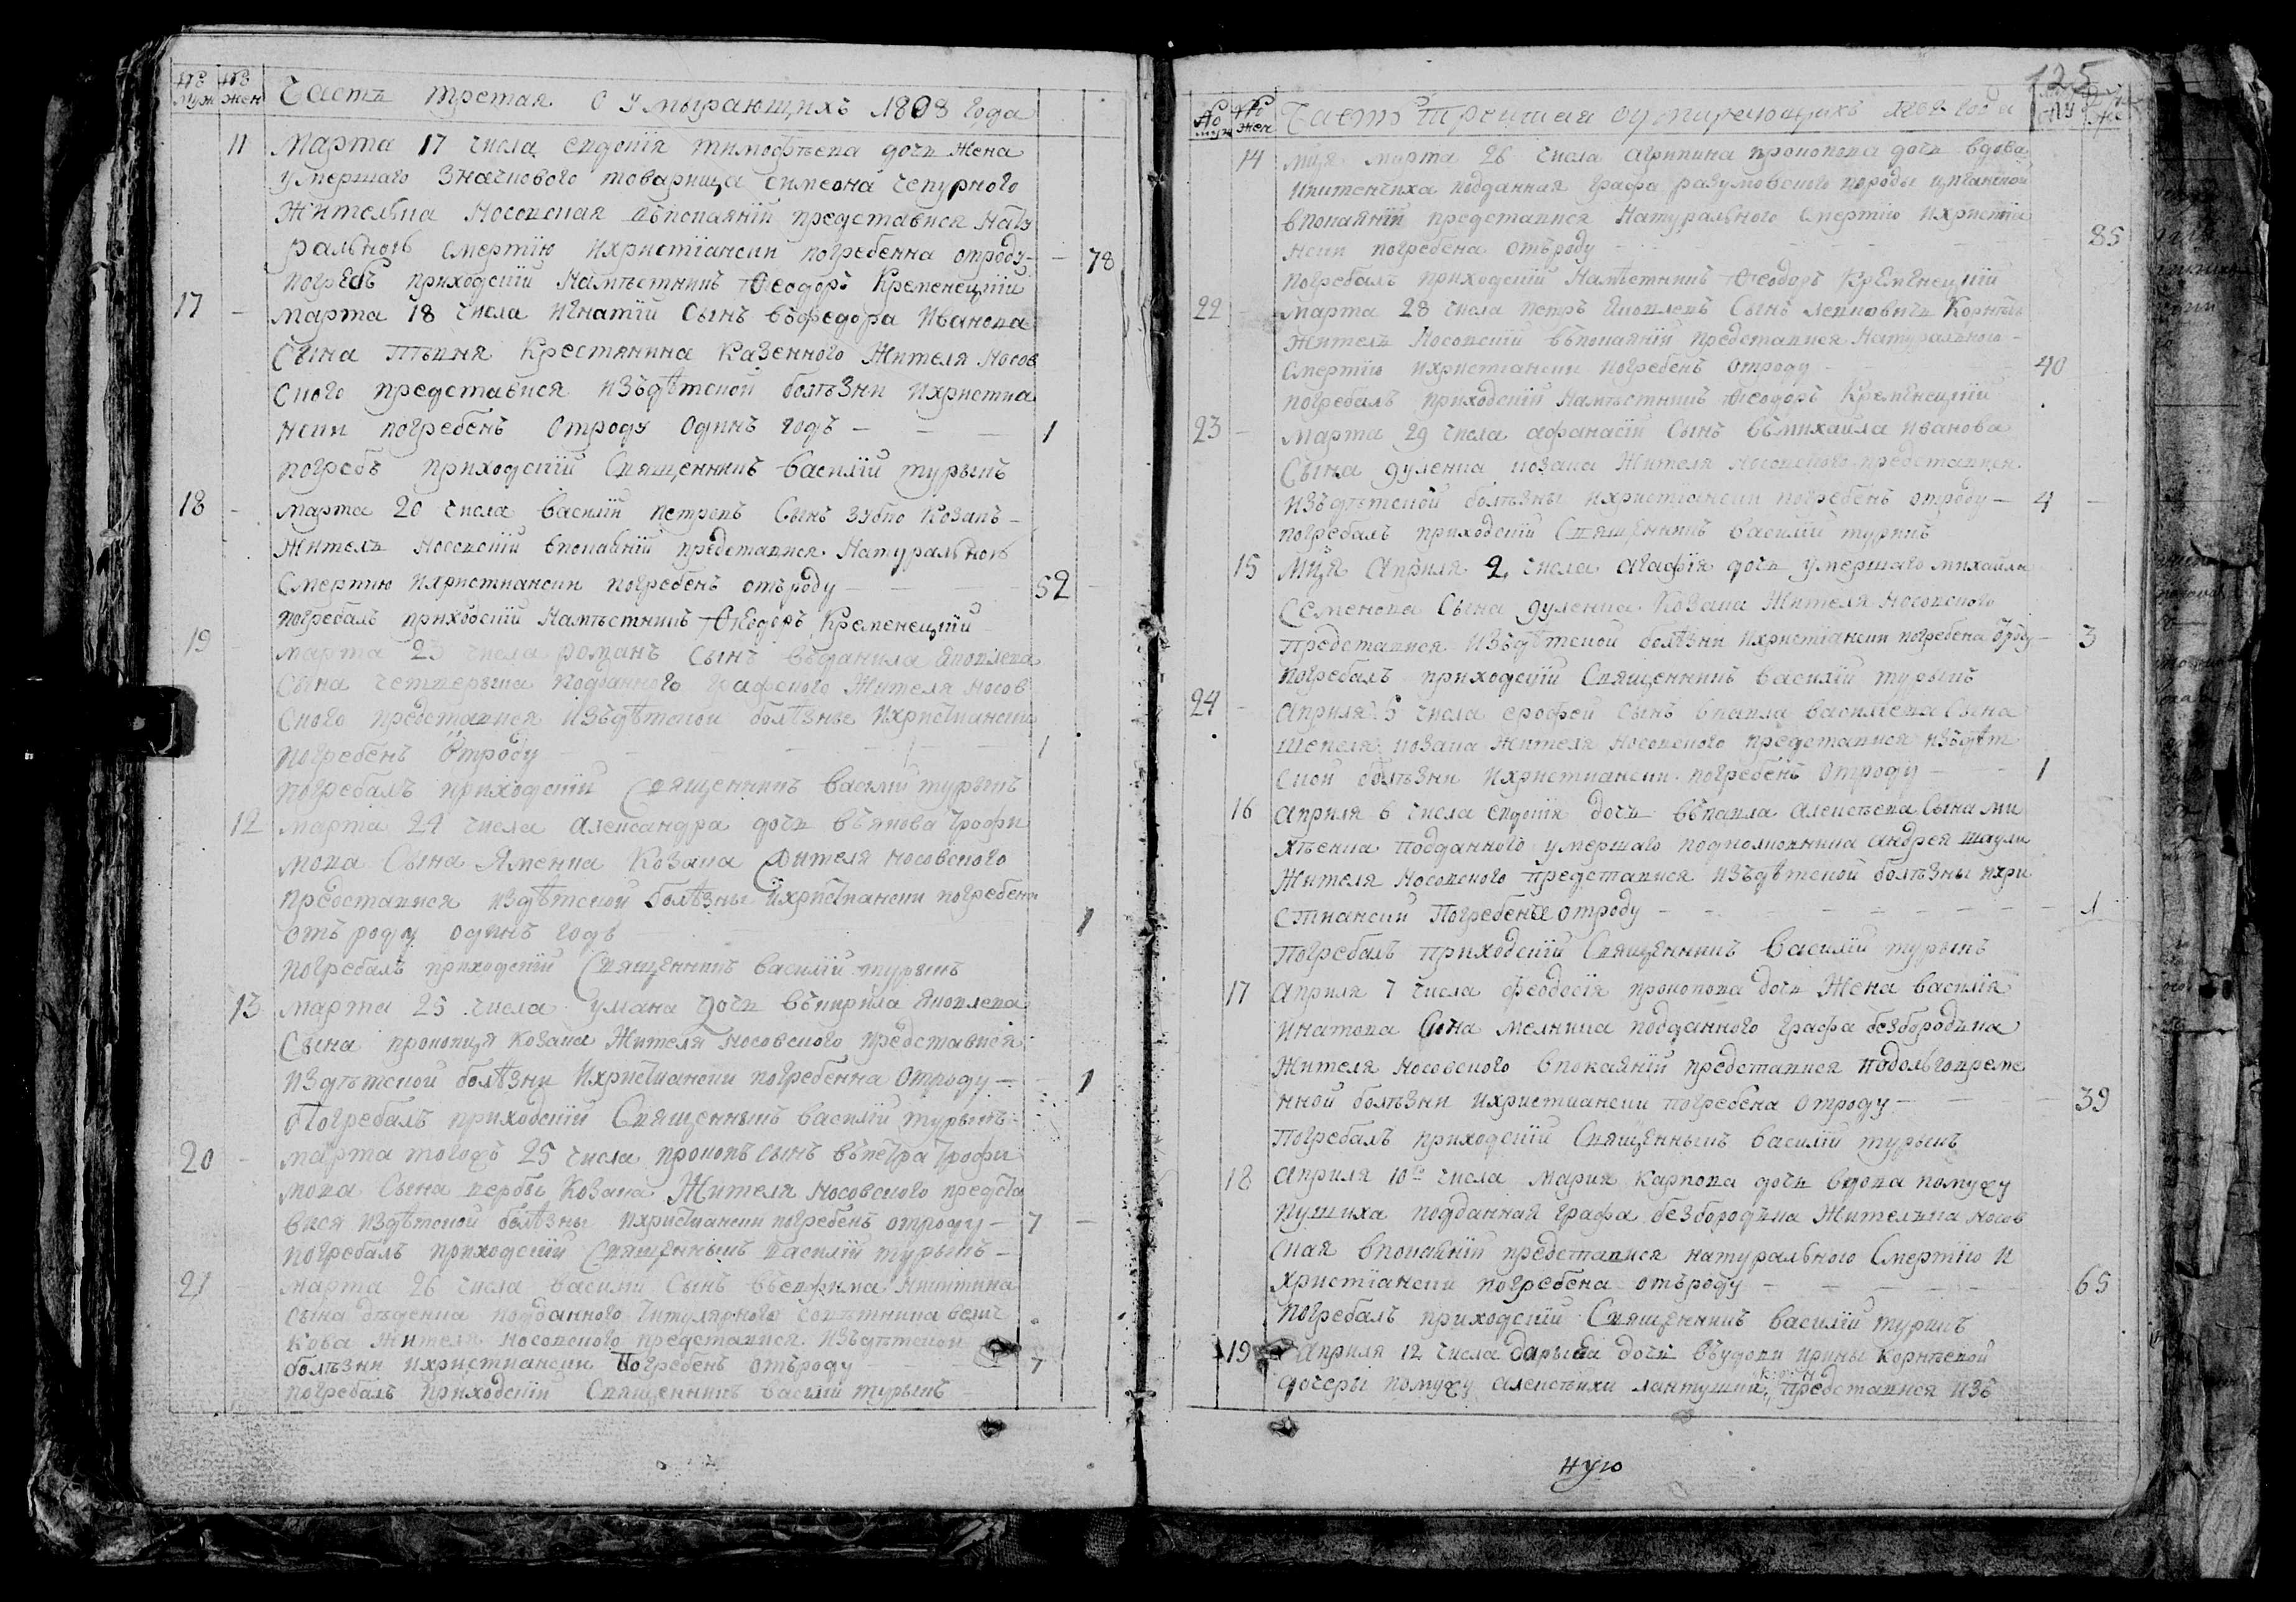 № муж № жен Часть третая О Умырающихъ 1808 года
11 Марта 17 числа евдокія тимофѣева дочь жена
умершаго Значкового товарища Симеона чепурного
Жителька Носовская въпокаяніи представися Нату
ральною смертію ихристіански погребенна отроду — 78
погребъ приходскій Намѣстникъ Феодоръ Кременецкій
17 — Марта 18 числа Игнатій Сынъ въфедора Иванова
Сына Крестянина Казенного Жителя Носов
ского представися изъдѣтской болѣзни Ихристиа
нски погребенъ Отроду Одинъ годъ — — — 1
погребъ приходскій Священникъ Василій турынъ
18 — марта 20 числа Василій петровъ Сынъ Зубко Козакъ —
Жителъ Носовскій впокаяніи представися Натуральною
Смертию Ихристиански погребенъ отъроду — 52 —
погребалъ приходскій Намѣстникъ Феодоръ Кременецкій
19 — марта 23 числа романъ сынъ въданила Яковлева
Сына четверыка подданного графского Жителя Носов
ского представися изъдѣтской болѣзни Ихристиански
погребенъ Отроду — — — 1
погребалъ приходскій Священникъ Василій турынъ
12 марта 24 числа александра дочь въякова трофи
мова Сына Яменка Козака Жителя Носовского
представися издѣтской болѣзны Ихристиански погребена
отъ роду одинъ годъ 1
погребалъ приходскій Священникъ Василій турынъ
13 марта 25 числа улиана дочь въкирила Яковлева
Сына прокопця Козака Жителя Носовского представися
издѣтской болѣзни Ихристиански погребенна Отроду — — 1
Погребалъ приходскій Священникъ Василій турынъ
20 — марта тогожъ 25 числа прокопъ сынъ въпетра трофи
мова Сына вербы Козака Жителя Носовского предста
вися издѣтской болѣзны Ихристиански погребенъ отроду — 7 —
погребалъ приходскій Священникъ Василій турынъ —
21 марта 26 числа Василій Сынъ въефима Никитина
сына дѣденка подданного титулярного совѣтника
кова Жителя Носовского представися изъдѣтской
болѣзни ихристиански Погребенъ отъроду 7
погребалъ приходскій Священникъ Василій турынъ —
125
№ муж № жен Часть третая оумирающихъ 1808 года
14 мця марта 26 числа агрипина прокопова дочь вдова
подданная графа разумовского породы циганской
впокаяніи представися Натуральною Смертію Ихристиа
нски погребена отъроду — 85
погребалъ приходскій Намѣстникъ Феодоръ Кременецкій
22 — марта 28 числа петръ Яковлевъ Сынъ
Жителъ Носовскій въпокаяніи представися Натуральною —
Смертію Ихристиански погребенъ отроду — 40
погребалъ приходскій Намѣстникъ Феодоръ Кременецкій
23 — марта 29 числа афанасій Сынъ въмихаила иванова
Сына дуленка козака Жителя Носовского представися
изъдѣтской болѣзны ихристиански погребенъ отроду — 4 —
погребалъ приходскій Священникъ Василій туринъ
15 Мця Априля 2 числа агафія дочь умершаго михайла
Семенова Сына дуленка Козака Жителя Носовского
представися изъдѣтской болѣзни ихристіански погребена Отроду — 3
погребалъ приходскій Священникъ Василій турынъ
24 — Априля 5 числа ерофей сынъ впавла василіева Сына
шепеля козака Жителя Носовского представися изъдѣт
ской болѣзни Ихристиански погребенъ отроду — — 1
16 Априля 6 числа евдокія дочь въпавла алексѣева Сына ми
хѣенка подданного умершаго подполковника андрея
Жителя Носовского представися изъдѣтской болѣзны ихри
стиански Погребена отроду — — — 1
погребалъ приходскій Священникъ Василій турынъ
17 Априля 7 числа феодосія прокопова дочь Жена Василія
игнатова Сына мелника подданного графа безбородъка
Жителя Носовского впокаяніи представися подолговреме
нной болѣзни ихристиански погребена отроду — — 39
Погребалъ приходскій Священникъ Василій турынъ
18 Априля 10го числа Мария Карпова дочь вдова помужу
пушиха подданная графа безбородъка Жителька Носов
ская впокаяніи представися натуральною Смертію И
христіански погребена отъроду — — — 65
погребалъ приходскій Священникъ Василій турынъ
19 Априля 12 числа Дарыа дочь въудови ирины Корнѣевой
дочеры помужу алексѣихи лантушки, представися изъ
ную